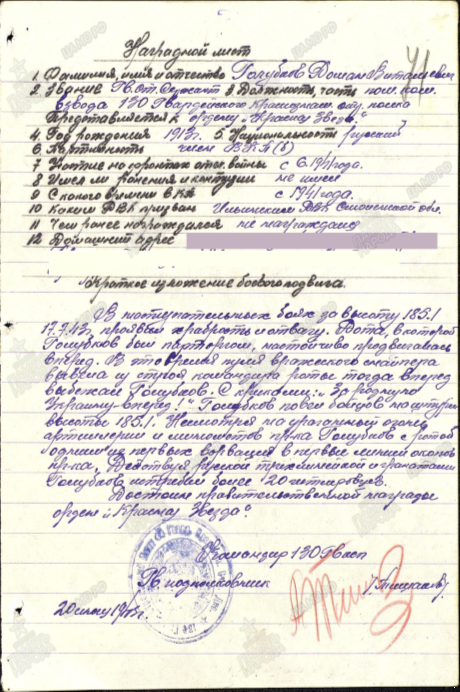 41
Наградной лист
1 Фамилия, имя и отчество Голубков Витальевич
2 Звание Гв. ст. Сержант 3 Должность, часть пом. ком.
взвода 130 Гвардейского Краснознам. стр. полка
Представляется к ордену „Красная Звезда".
4 Год рождения 1913г. 5. Национальность русский
6 Партийность член ВКП(б)
7 Участие на фронтах отеч. войны с 6.1941 года.
8 Имел ли ранения и контузии не имеет
9 С какого времени в КА с 1941 года.
10 Каким РВК призван РВК Смоленской обл.
11 Чем ранее награждался не награждался
12 Домашний адрес
Краткое изложение боевого подвига.
В наступательных боях за высоту 185.1
17.7.43г. проявил храбрость и отвагу. Рота, в которой
Голубков был парторгом, настойчиво продвигалась
вперед. В это время пуля вражеского снайпера
вывела из строя командира роты тогда вперед
выбежал Голубков. С криком: „За родную
Украину - вперед!" Голубков повел бойцов на штурм
высоты 185.1. Несмотря на ураганный огонь
артиллерии и минометов пр-ка Голубков с ротой
одним из первых ворвался в первые линии окопов
пр-ка, Действуя гранатами
Голубков истребил более 20 гитлеровцев.
Достоин правительственной награды
орден „Красная Звезда".
Командир 130 Гв сп
Гв. подполковник
20 июля 1943г.